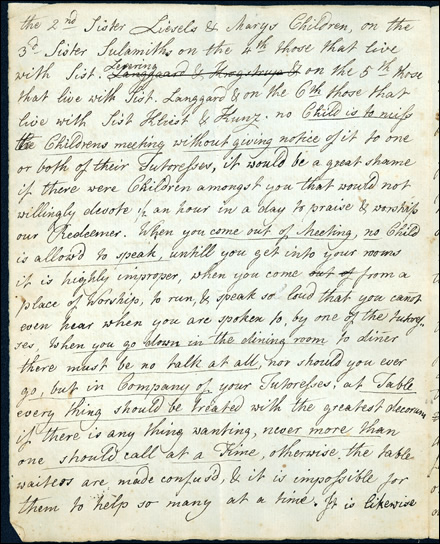 the 2nd Sister Liesels & Marys Children, on the
3d Sister Sulamiths on the 4th those that live
with Sist. Lenring Langgaard & Krogstrup & on the 5th those
that live with Sist. Langgard & on the 6th those that
live with Sist Hliest & Kunz, no Child is to miss
the Childrens meeting without giving notice of it to one
or both of their Tutoresses, it would be a great shame
if there were Children amongst you that would not
willingly devote 1/2 an hour in a day to praise & worship
our Redeemer. When you come out of Meeting, no Child
is allow'd to speak, untill you get into your rooms
it is highly improper, when you come out of from a
place of Worship, to run, & speak so loud that you cannot
even hear when you are spoken to, by one of the tutores-
ses, When you go down in the dining room to diner
there must be no talk at all, nor should you ever
go, but in Company of your Tutoresses, at Table
every thing should be treated with the greatest decorum
if there is any thing wanting, never more than
one should call at a time, otherwise the table
waiters are made confusd, & it is impossible for
them to help so many at a time. It is likewise